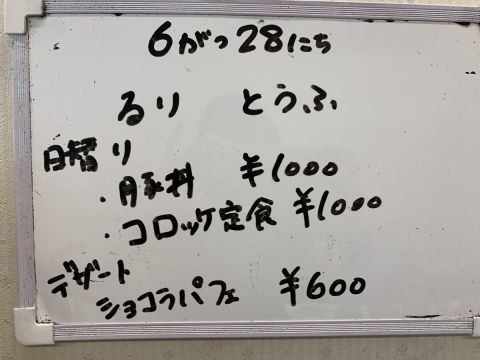 6がつ28にち
るり とうふ
日替り
・豚料 ¥1000
・コロッケ定食 ¥1000
デザート
ショコラパフェ ¥600